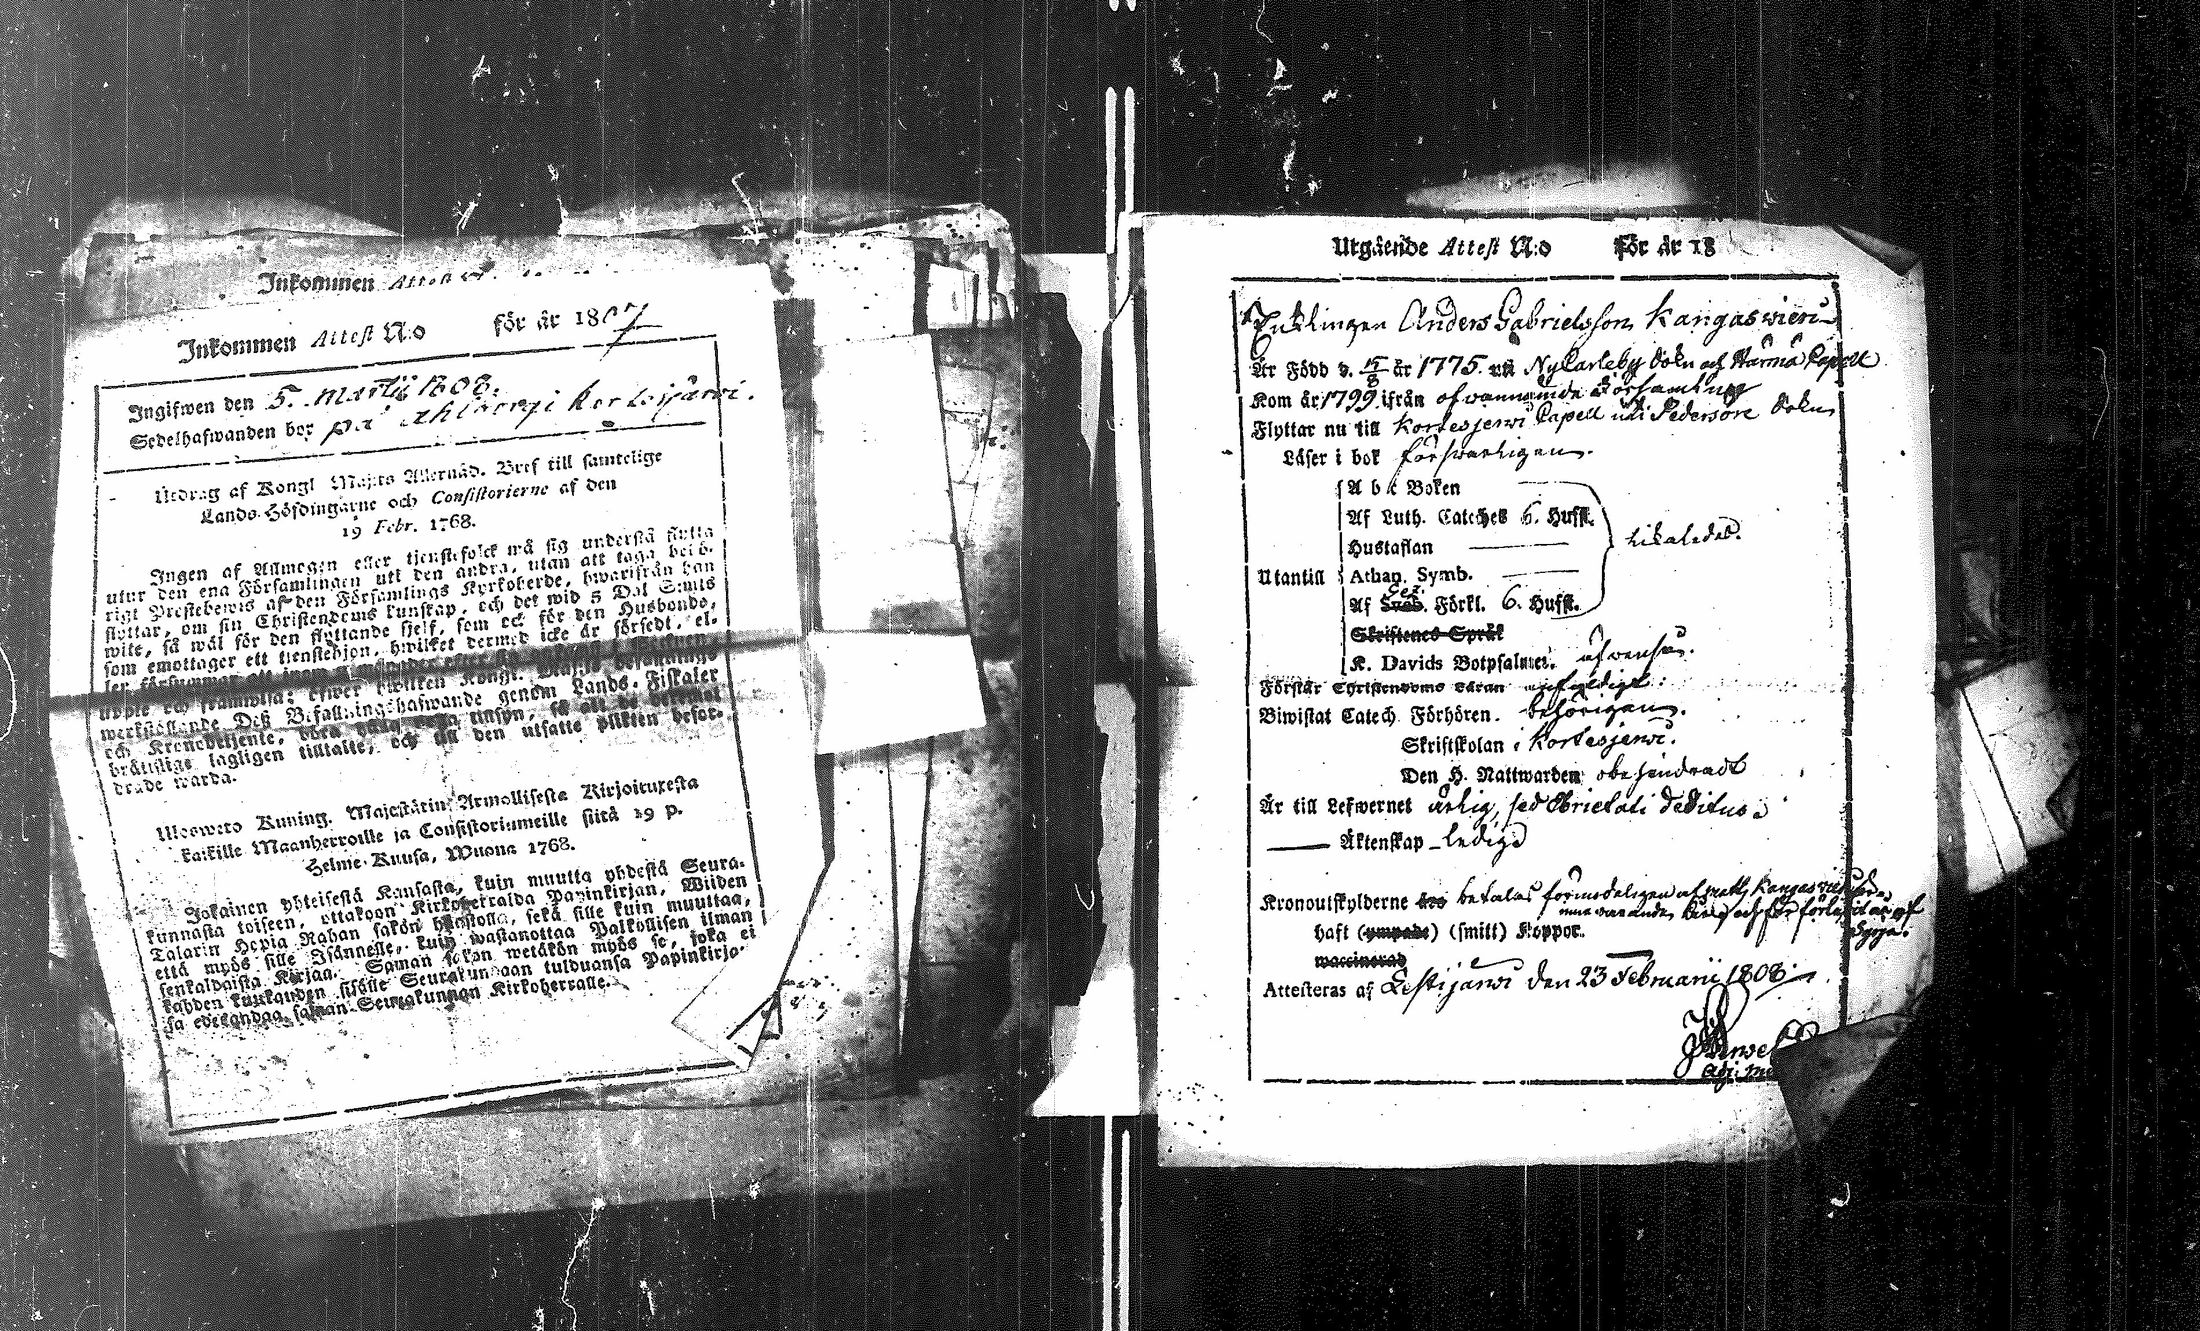 Inkommen Attest
Inkommen Attest N:o för år 1807
Ingifwen den 5. Martii 1808.
Sedelhafwanden bor på Kortesjärwi.
Utdrag af Kongl Maj:ts Allernåd. Bref till samtelige
Lands-Höfdingarne och Consistorierne af den
19 Febr. 1768.
Ingen af Allmogen eller tjenstefolck må sig understå flytta
utur den ena Församlingen utt den andra, utan att taga behö-
rigt Prestebewis af den Församlings Kyrkoherde, hwarifrån han
flyttar, om sin Christendoms kunskap, och det wid 5 Dal S:mts
wite, så wäl för den flyttande sielf, som ock för den Husbonde,
som emottager ett tienstehjon, hwilket dermed icke är försedt, el-
ler försummar att inom
uppte och framwisa; öfwer hwilken Kongl. Maj:ts
werkställande Deß Befallningshafwande genom Lands-Fiskaler
och Kronobetjente, böra hafwa tillsyn, så att de
bråttslige lagligen tilltalte, och till den utsatte plikten befor-
drade warda.
Ulosweto Kuning. Majestätin Armollisesta Kirjoituxesta
kaikille Maanherroille ja Consistoriumeille siitä 19 p.
Helme-Kuusa, Wuona 1768.
Jokainen yhteisestä Kansasta, kuin muutta yhdestä Seura-
kunnasta toiseen, ottakoon Kirkoherralda Papinkirjan, Wiiden
Talarin Hopia Rahan sakon haastolla, sekä sille kuin muuttaa,
että myös sille Isännelle, kuin wastanottaa Palkollisen ilman
senkaldaista Kirjaa. Saman sakon wetäkön myös se, joka ei
kahden kuukauden sisälle Seurakundaan tulduansa Papinkirja-
sa edesandaa saman Seurakunnan Kirkoherralle.
Utgående Attest N:o för år 18
Anders Gabrielsson Kangaswieri
Är Född d. 15/8 år 1775. uti NyCarleby Sokn och Härmä Capell
Kom år 1799. ifrån ofwannämde Församling
Flyttar nu till Kortesjerwi Capell uti Pedersöre Sokn
Läser i bok förswarligen.
A b c Boken
Af Luth. Catches 6. Hufst.
Hustaflan
Utantill Athan. Symb. likaledes.
Af Sveb. Förkl. 6. Hufst.
Skriftenes Språk
K. Davids Botpsalmer. äfwenså.
Förstår Christendoms Läran enfaldigt
Biwistat Catech. Förhören. behörigen.
Skriftskolan i Kortesjerwi.
Den H. Nattwarden obehindradt
Är till Lefwernet ärlig, sed Ebrietati deditus.
Äktenskap ledig
Kronoutskylderne betalas förmodeligen af Matts Kangaswieri
innewarande och för
haft (ympade) (smitt) Koppor.
waccinerad
Attesteras af Lestijärwi den 23 Februarii 1808.